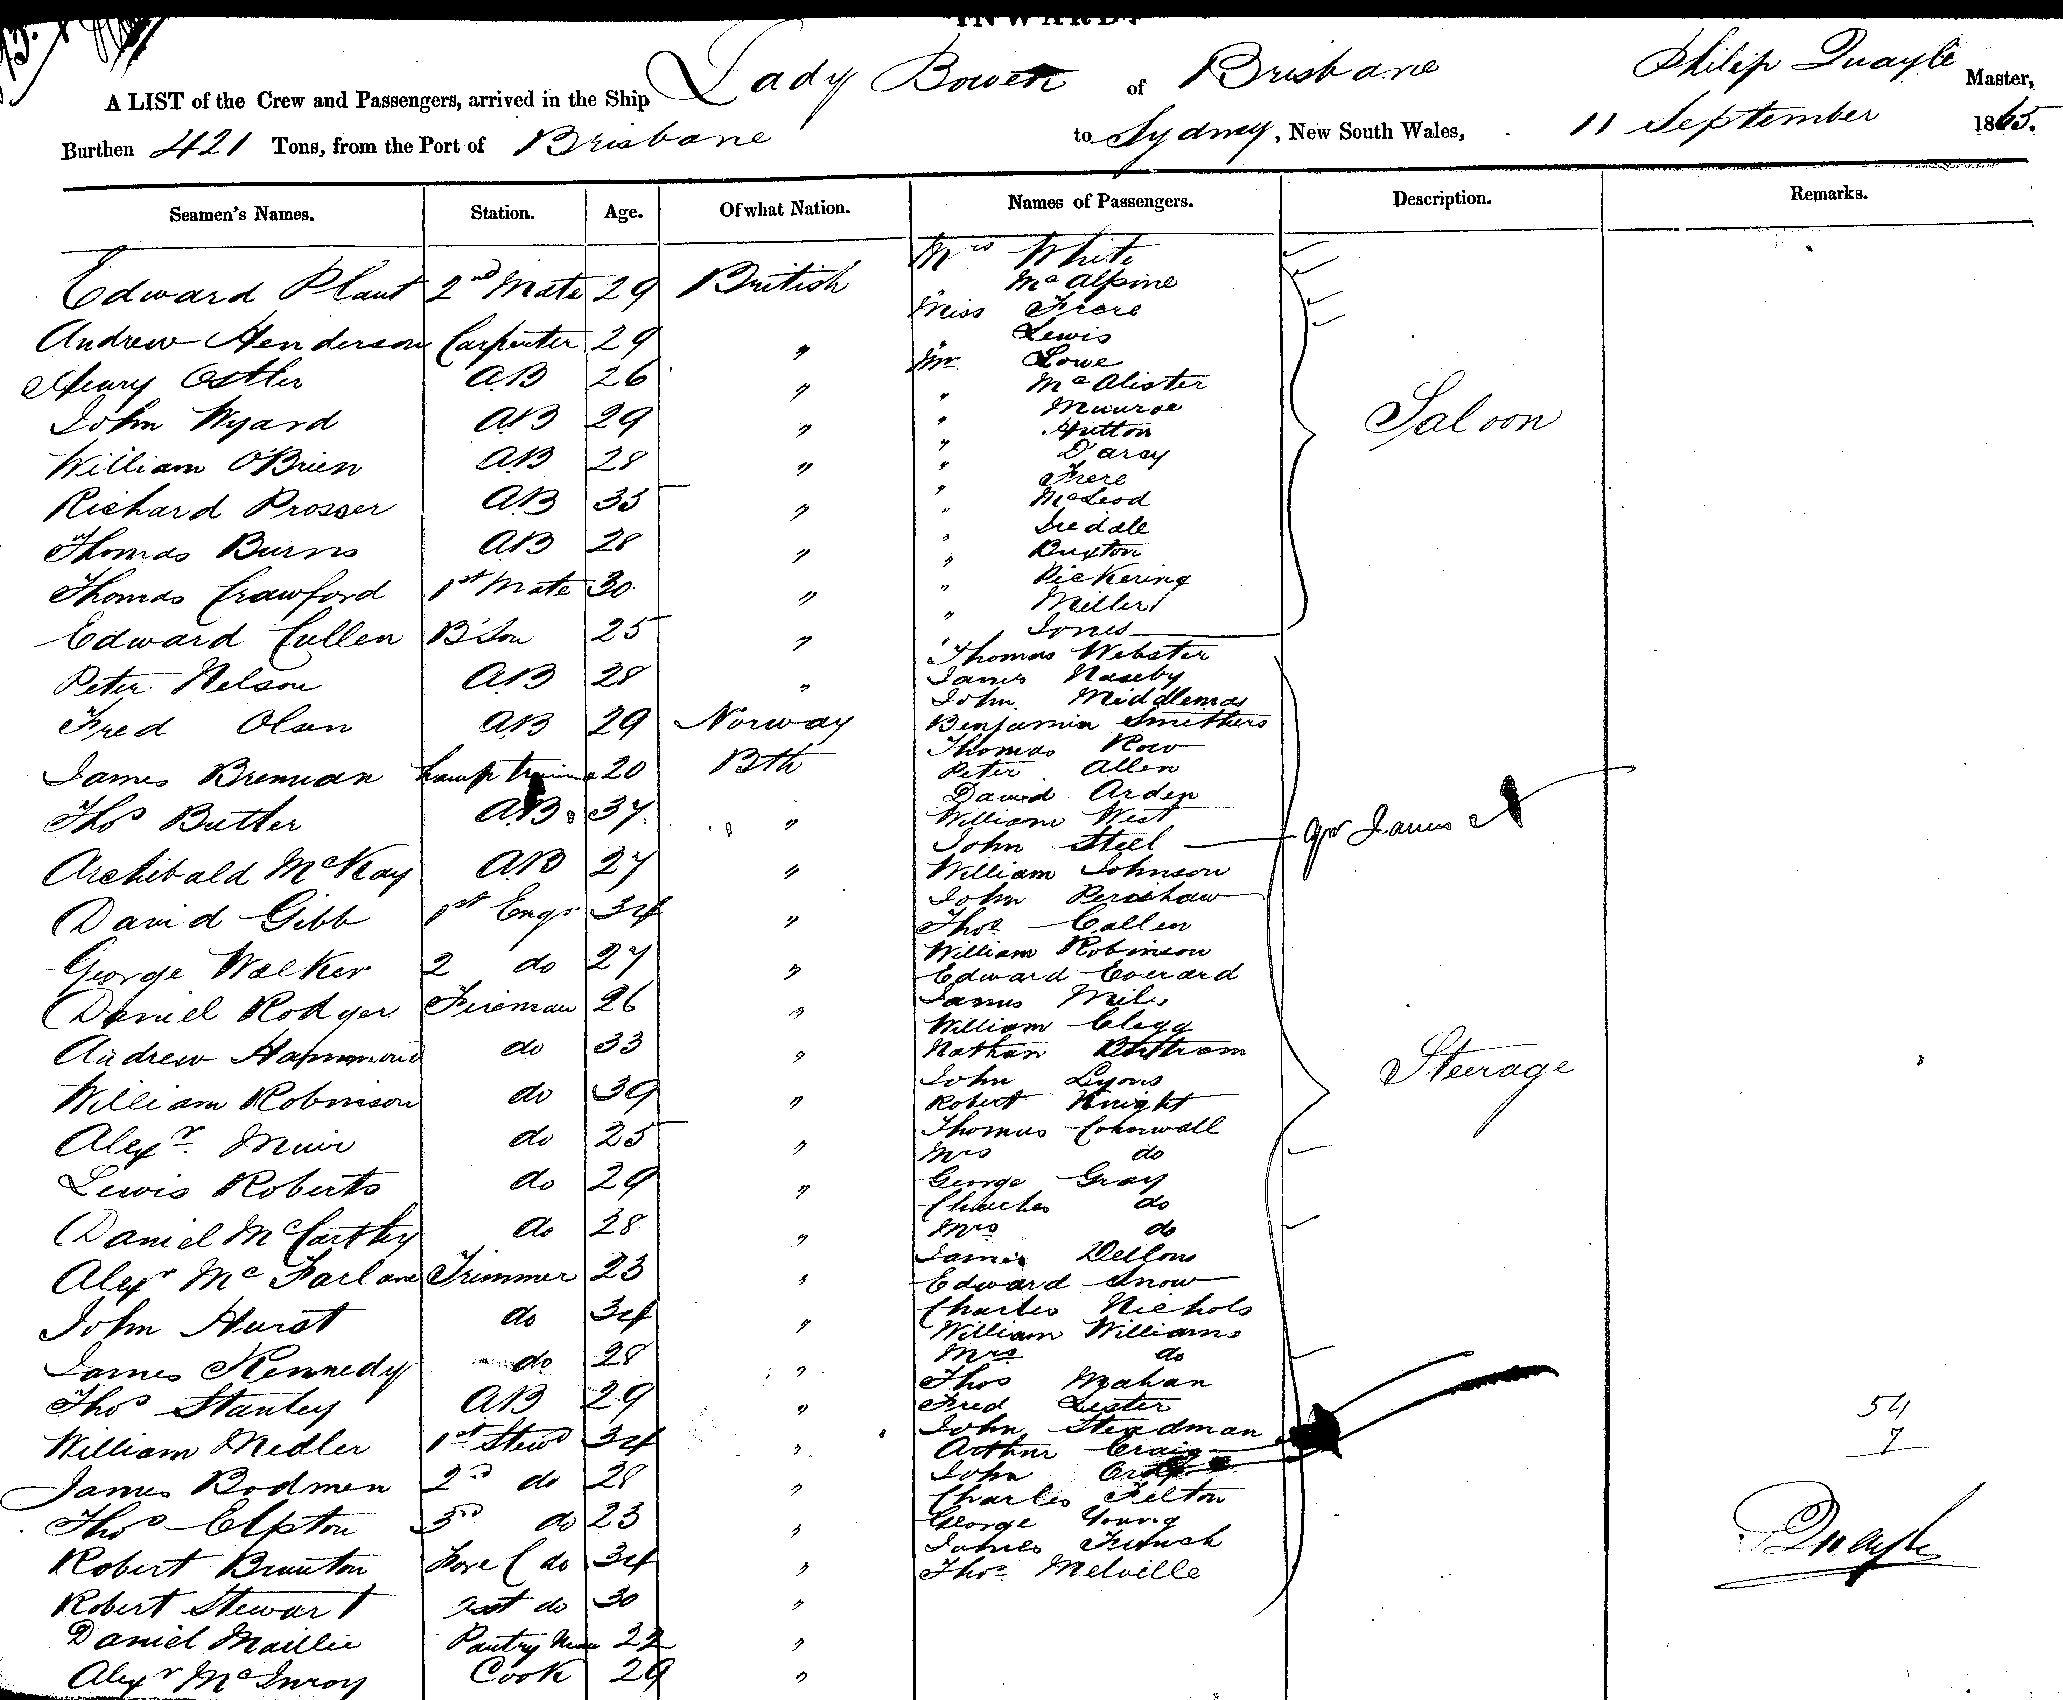 INWARD.
Lady Bowen of Brisbane Philip Quayle Master,
A LIST of the Crew and Passengers, arrived in the Ship
Burthen 421 Tons, from the Port of Brisbane to Sydney, New South Wales, 11 September 1865.
Seamen's Names. Station. Age. Of what Nation. Names of Passengers. Description. Remarks.
Edward Plant 2nd Mate 29 British
Andrew Henderson Carpenter 29 "
Henry Ostler AB 26 "
John Wyard AB 29 "
William O'Brien AB 28 "
Richard Prosser AB 35 "
Thomas Burns AB 28 "
Thomas Crawford 1st Mate 30 "
Edward Cullen B'Son 25 "
Peter Nelson AB 28 "
Fred Olsen AB 29 Norway
James Brennan Lamp 20 Bth
Thos Butler AB 37 "
Archibald McKay AB 27 "
David Gibb 1st Engr 34 "
George Walker 2 do 27 "
Daniel Rodger Fireman 26 "
Andrew Hammond do 33 "
William Robinson do 39 "
Alexr Muir do 25 "
Lewis Roberts do 29 "
Daniel McCarthy do 28 "
Alexr McFarlane Trimmer 23 "
John Hurst do 34 "
James Kennedy do 28 "
Thos Stanley AB 29 "
William Medler 1st Stewd 34 "
James Bodmen 2nd do 28 "
Thos Elpton 3rd do 23 "
Robert Brunton Fore C do 34 "
Robert Stewart do 30 "
Daniel Maillie Pantry 22 "
Alexr McInroy Cook 29 "
Mrs White
" McAlpine
Miss Frere
" Lewis
Mr Lowe
" McAlister
" Munroe
" Hutton
" Darcy
" Frere
" McLeod
" Iredale
" Buxton
" Pickering
" Miller
" Jones
Saloon
Thomas Webster
James Naseby
John Middlemas
Benjamin Smithers
Thomas Row
Peter Allen
David Arden
William West
John Steel
James
William Johnson
John Perishaw
Thos Callen
William Robinson
Edward Everard
James Miles
William Clegg
Nathan Bertram
John Lyons
Robert Knight
Thomas Cornwall
Mrs do
George Gray
Charles do
Mrs do
James Dellow
Edward Snow
Charles Nichols
William Williams
Mrs do
Thos Mahan
Fred Lester
John Steadman
Arthur Craig
John
Charles Felton
George Young
James French
Thos Melville
Steerage
54
7
Quayle